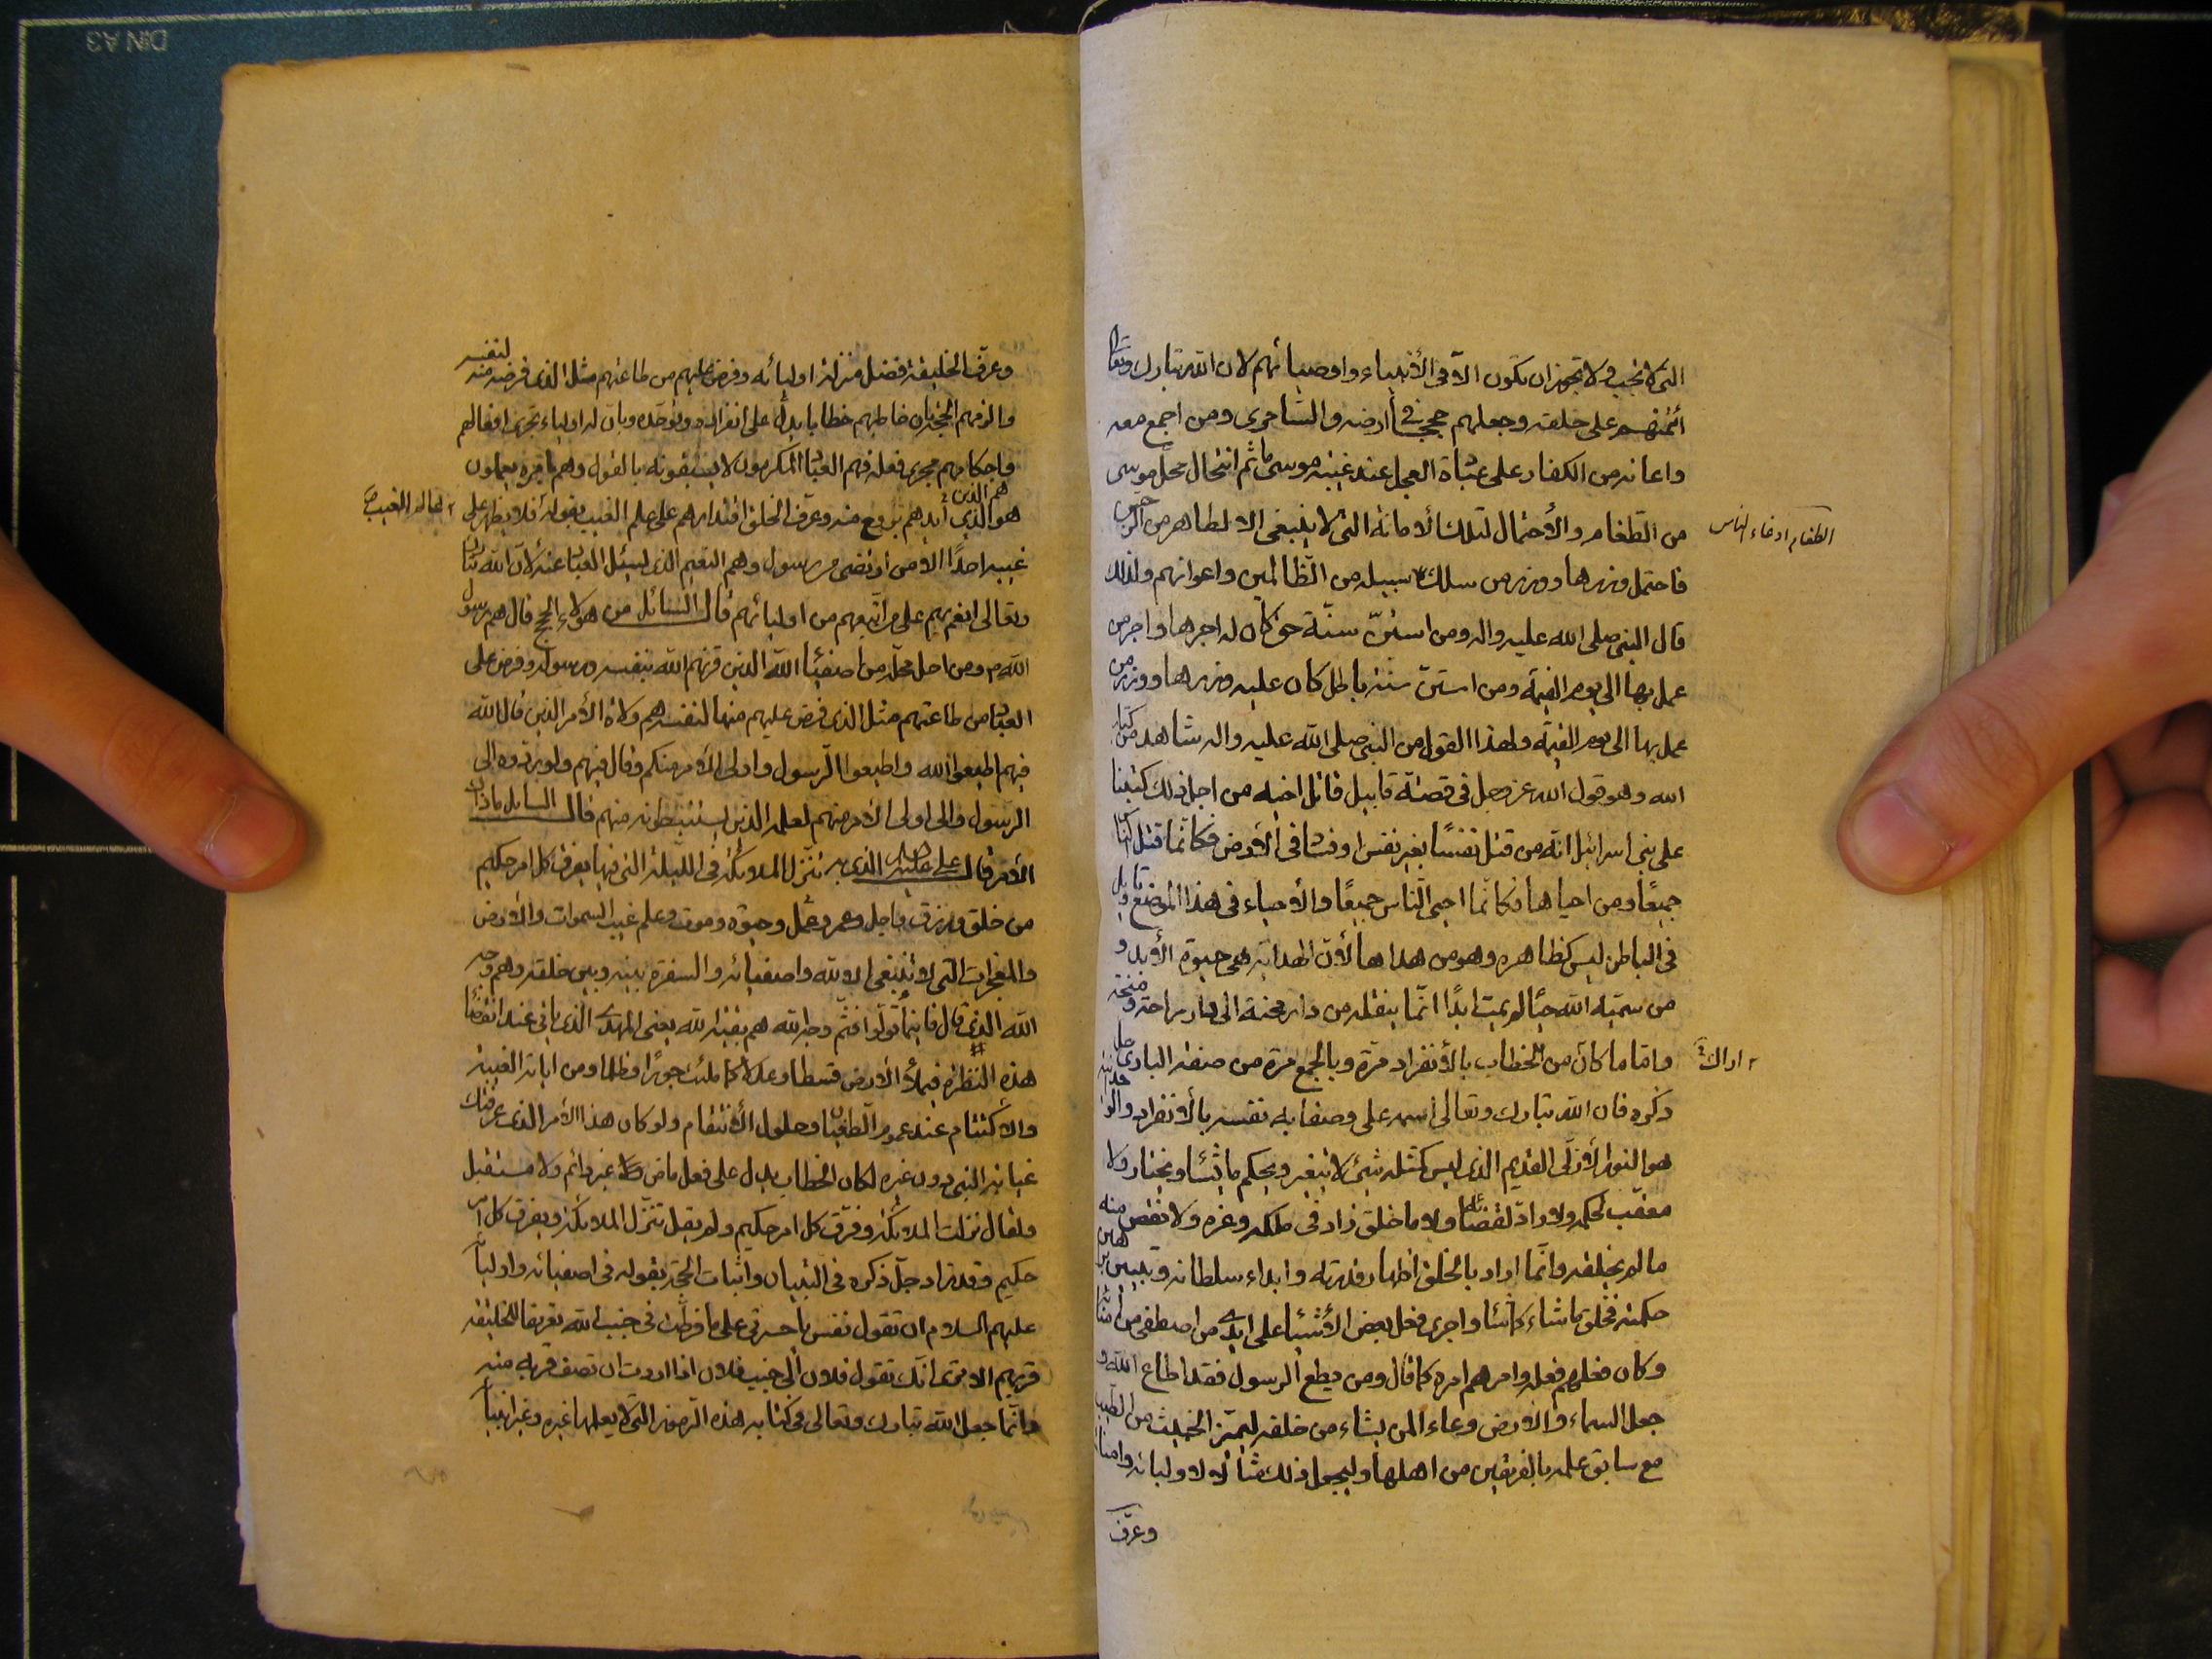 التى لا تجب ولا تجوز ان تكون الا فى الأنبياء واوصيائهم لان الله تبارك وتعالى
ائتمنهم على خلقه وجعلهم حججا فى أرضه والسامرى ومن اجمع معه
واعانه من الكفار على عبادة العجل عند غيبة موسى ما تم انتحال محل موسى
من الطغام والأحتمال لتلك الأمانة التى لا ينبغى الا لطاهر من الرجس
الطغام ادغاء الناس
فاحتمل وزرها ووزر من سلك سبيله من الظالمين واعوانهم ولذلك
قال النبى صلى الله عليه واله ومن استن سنة حق كان له اجرها واجر من
عمل بها الى يوم القيمة ومن استن سنة باطل كان عليه وزرها ووزر من
عمل بها الى يوم القيمة ولهذا القول من النبى صلى الله عليه واله شاهد من كتاب
الله وهو قول الله عز وجل فى قصة قابيل قاتل اخيه من اجل ذلك كتبنا
على بنى اسرائيل انه من قتل نفسًا بغير نفس او فساد فى الأرض فكانما قتل الناس
جميعًا ومن احياها فكانما احيى الناس جميعًا والأحياء فى هذا الموضع تاويل
فى الباطن ليس كظاهره وهو من هداها لأن الهداية هى حيوة الأبد و
من سمّيه الله حيًا لم يمت ابدًا انما ينقله من دار محنة الى دار راحة ومنحة
واما ما كان من الخطاب بالأنفراد مرة وبالجمع مرة من صفة البارى جل
ذكره فان الله تبارك وتعالى اسمه على وصف به نفسه بالأنفراد والوحدانية
هو النور الأزلى القديم الذى ليس كمثله شىء لا يتغير ويحكم ما يشاء ويختار ولا
معقب لحكمه ولا راد لقضائه ولا ما خلق زاد فى ملكه وعزه ولا نقص منه
ما لم يخلقه وانما اراد بالخلق اظهار قدرته وابداء سلطانه وتبيين براهين
حكمته فخلق ما شاء كما شاء واجرى فعل بعض الأشياء على ايدى من اصطفى من امنائه
وكان فعلهم فعله وامرهم امره كما قال ومن يطع الرسول فقد اطاع الله و
جعل السماء والأرض وعاء لمن يشاء من خلقه ليميز الخبيث من الطيب
مع سابق علمه بالفريقين من اهلها وليجعل ذلك مثالا لاوليائه وامنائه
وعرّف
وعرّف الخليقة فضل منزلة اوليائه وفرض عليهم من طاعتهم مثل الذى فرضه منه لنفسه
والزمهم الحجة بان خاطبهم خطابا يدل على انفراده وتوحده وبان له اولياء تجرى افعالهم
واحكامهم مجرى فعله فهم العباد المكرمون لا يسبقونه بالقول وهم بامره يعملون
هو الذى ايدهم بروح منه وعرف الخلق اقتدارهم على علم الغيب بقوله فلا يظهر على
هم الذين
غيبه احدًا الا من ارتضى من رسول وهم النعيم الذى يسئل العباد عنه لان الله تبارك
وتعالى انعم بهم على من اتبعهم من اوليائهم قال السائل من هؤلاء الحجج قال هم رسول
الله ومن احل محله من اصفياء الله الذين قرنهم الله بنفسه ورسوله وفرض على
العباد من طاعتهم مثل الذى فرض عليهم منها لنفسه هم ولاة الأمر الذين قال الله
فيهم اطيعوا الله واطيعوا الرسول واولى الأمر منكم وقال فيهم ولو ردوه الى
الرسول والى اولى الأمر منهم لعلمه الذين يستنبطونه منهم قال السايل ما ذاك
الأمر قال على عليه السلام الذى به تنزل الملائكة فى الليلة التى فيها يفرق كل امر حكيم
من خلق ورزق واجل وعمر وعمل وحيوة وموت وعلم غيب السموات والأرض
والمعجزات التى لا ينبغى الا لله واصفيائه والسفرة بينه وبين خلقه وهم وجه
الله الذى قال فاينما تولوا فثم وجه الله هم بقية الله يعنى المهدى الذى ياتى عند انقضاء
هذه النظرة فيملأ الأرض قسطا وعدلا كما ملئت جورًا وظلما ومن اياته الغيبة
والاكتتام عند عموم الطغيان وحلول الأنتقام ولو كان هذا الأمر الذى عرفتك
غيابه النبى دون غيره لكان الخطاب يدل على فعل ماض غير دائم ولا مستقبل
ولقال نزلت الملائكة وفرق كل امر حكيم ولم يقل تنزل الملائكة ويفرق كل امر
حكيم وقد زاد جل ذكره فى التبيان واثبات الحجة بقوله فى اصفيائه واوليائه
عليهم السلام ان تقول نفس يا حسرتى على ما فرطت فى جنب الله تعريفا للخليقة
قربهم الا ترى انك تقول فلان الى جنب فلان اذا اردت ان تصف قربه منه
وانما جعل الله تبارك وتعالى فى كتابه هذه الرموز التى لا يعلمها غيره وغير انبيائه